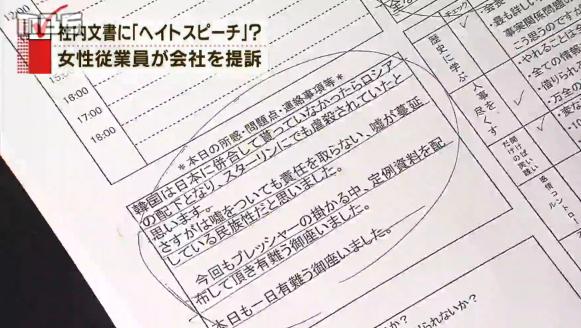 社内文書に「ヘイトスピーチ」?
女性従業員が会社を提訴
12:00
15:00
16:00
17:00
18:00
*本日の所感・問題点・連絡事項等*
韓国は日本に併合して貰っていなかったらロシア
の配下となり、スターリンにでも虐殺されていたと
思います。
さすがは嘘をついても責任を取らない、嘘が蔓延
している民族性だと思いました。
今回もプレッシャーの掛かる中、定例資料を配
布して頂き有難う御座いました。
本日も一日有難う御座いました。
チェック
歴史に学ぶ
人事尽くす
・最も詳しい
事実関係
こう思うのです
・やれることは
・全ての情報
・借りられる
・万全の
感情コントロ
か?
られないか?